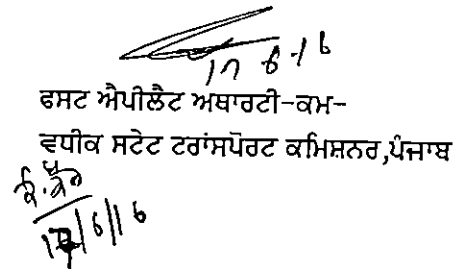 17 6-16
ਫਸਟ ਐਪੀਲੈਟ ਅਥਾਰਟੀ-ਕਮ-
ਵਧੀਕ ਸਟੇਟ ਟਰਾਂਸਪੋਰਟ ਕਮਿਸ਼ਨਰ,ਪੰਜਾਬ
17/6/16